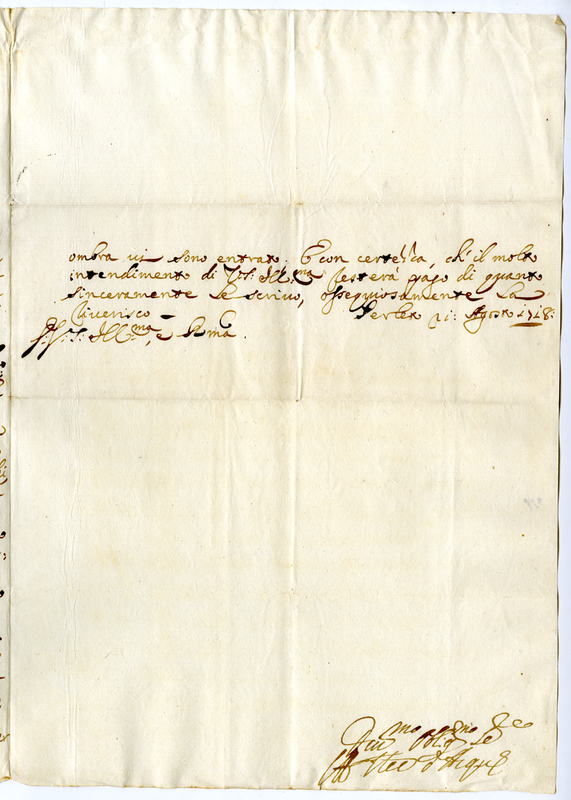 ombra vi sono entrato. E con certezza, ch'il molto
intendimento di V.S. Ill.ma resterà pago di quanto
sinceramente Le scrivo, ossequiosamente La
riverisco
Agosto
D. V. S. Ill.ma, e R.ma.
Div.mo Oblig.mo